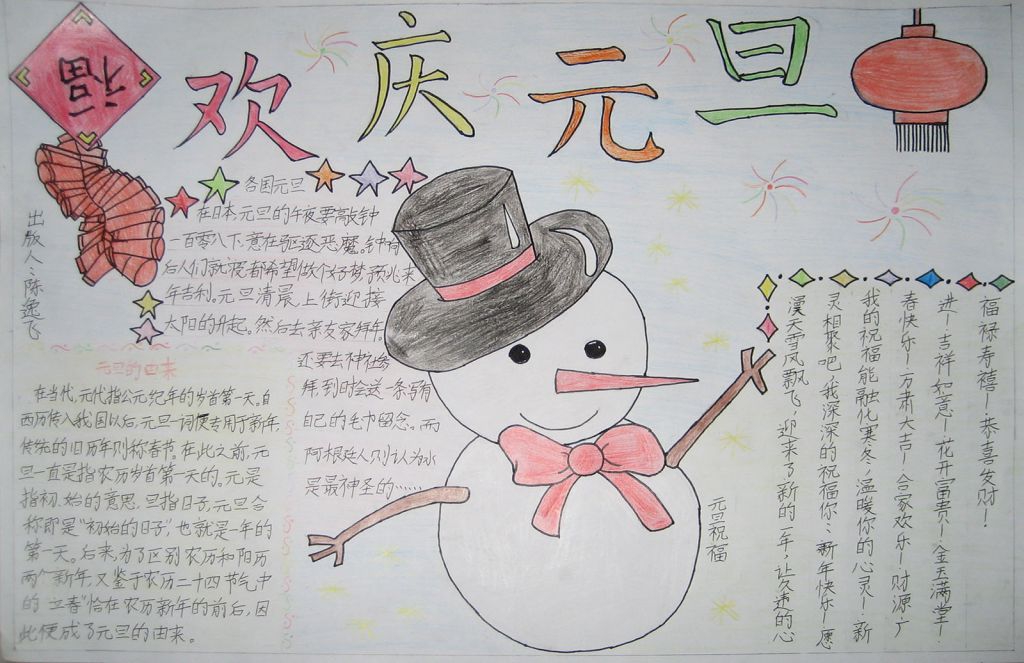 福
欢庆元旦
出版人：陈逸飞
各国元旦
在日本,元旦的午夜要敲钟
一百零八下,意在驱逐恶魔。钟
后人们就寝,都希望做个好梦,预兆来
年吉利。元旦清晨,上街迎接
太阳的升起。然后去亲友家拜年
还要去神社
拜,到时会送一条写有
自己的毛巾留念。而
阿根廷人则认为水
是最神圣的……
元旦的由来
在当代,元代指公元纪年的岁首第一天。自
西历传入我国以后,元旦一词便专用于新年,
传统的旧历年则称春节。在此之前,元
旦一直是指农历岁首第一天的。元是
指初、始的意思,旦指日子,元旦合
称即是“初始的日子”,也就是一年的
第一天。后来,为了区别农历和阳历
两个新年,又鉴于农历二十四节气中
的“立春”恰在农历新年的前后,因
此便成了元旦的由来。
元旦祝福
福禄寿禧！恭喜发财！
进！吉祥如意！花开富贵！金玉满堂！
春快乐！万肃大吉！合家欢乐！财源广
我的祝福能融化寒冬,温暖你的心灵！新
灵相聚吧,我深深的祝福你,新年快乐！愿
漢天雪风飘飞,迎来了新的一年,让久违的心